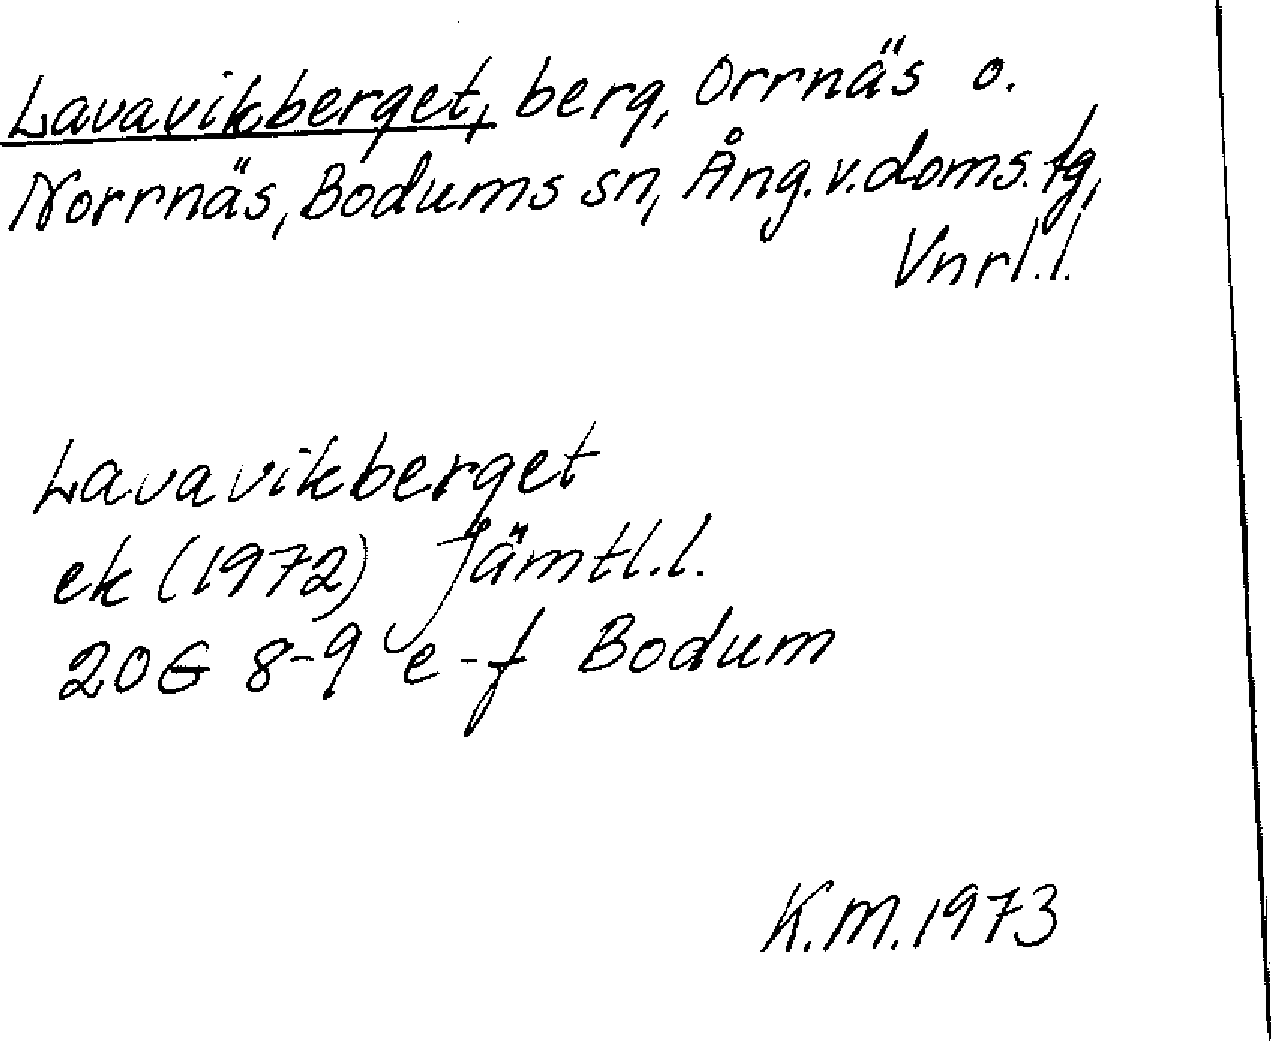 Lavavikberget, berg, Orrnäs o.
Norrnäs, Bodums sn, Ång. v. doms. tg,
Vnrl. l.
Lavavikberget
ek (1972) Jämtl. l.
20G 8-9 e-f Bodum
K.M. 1973